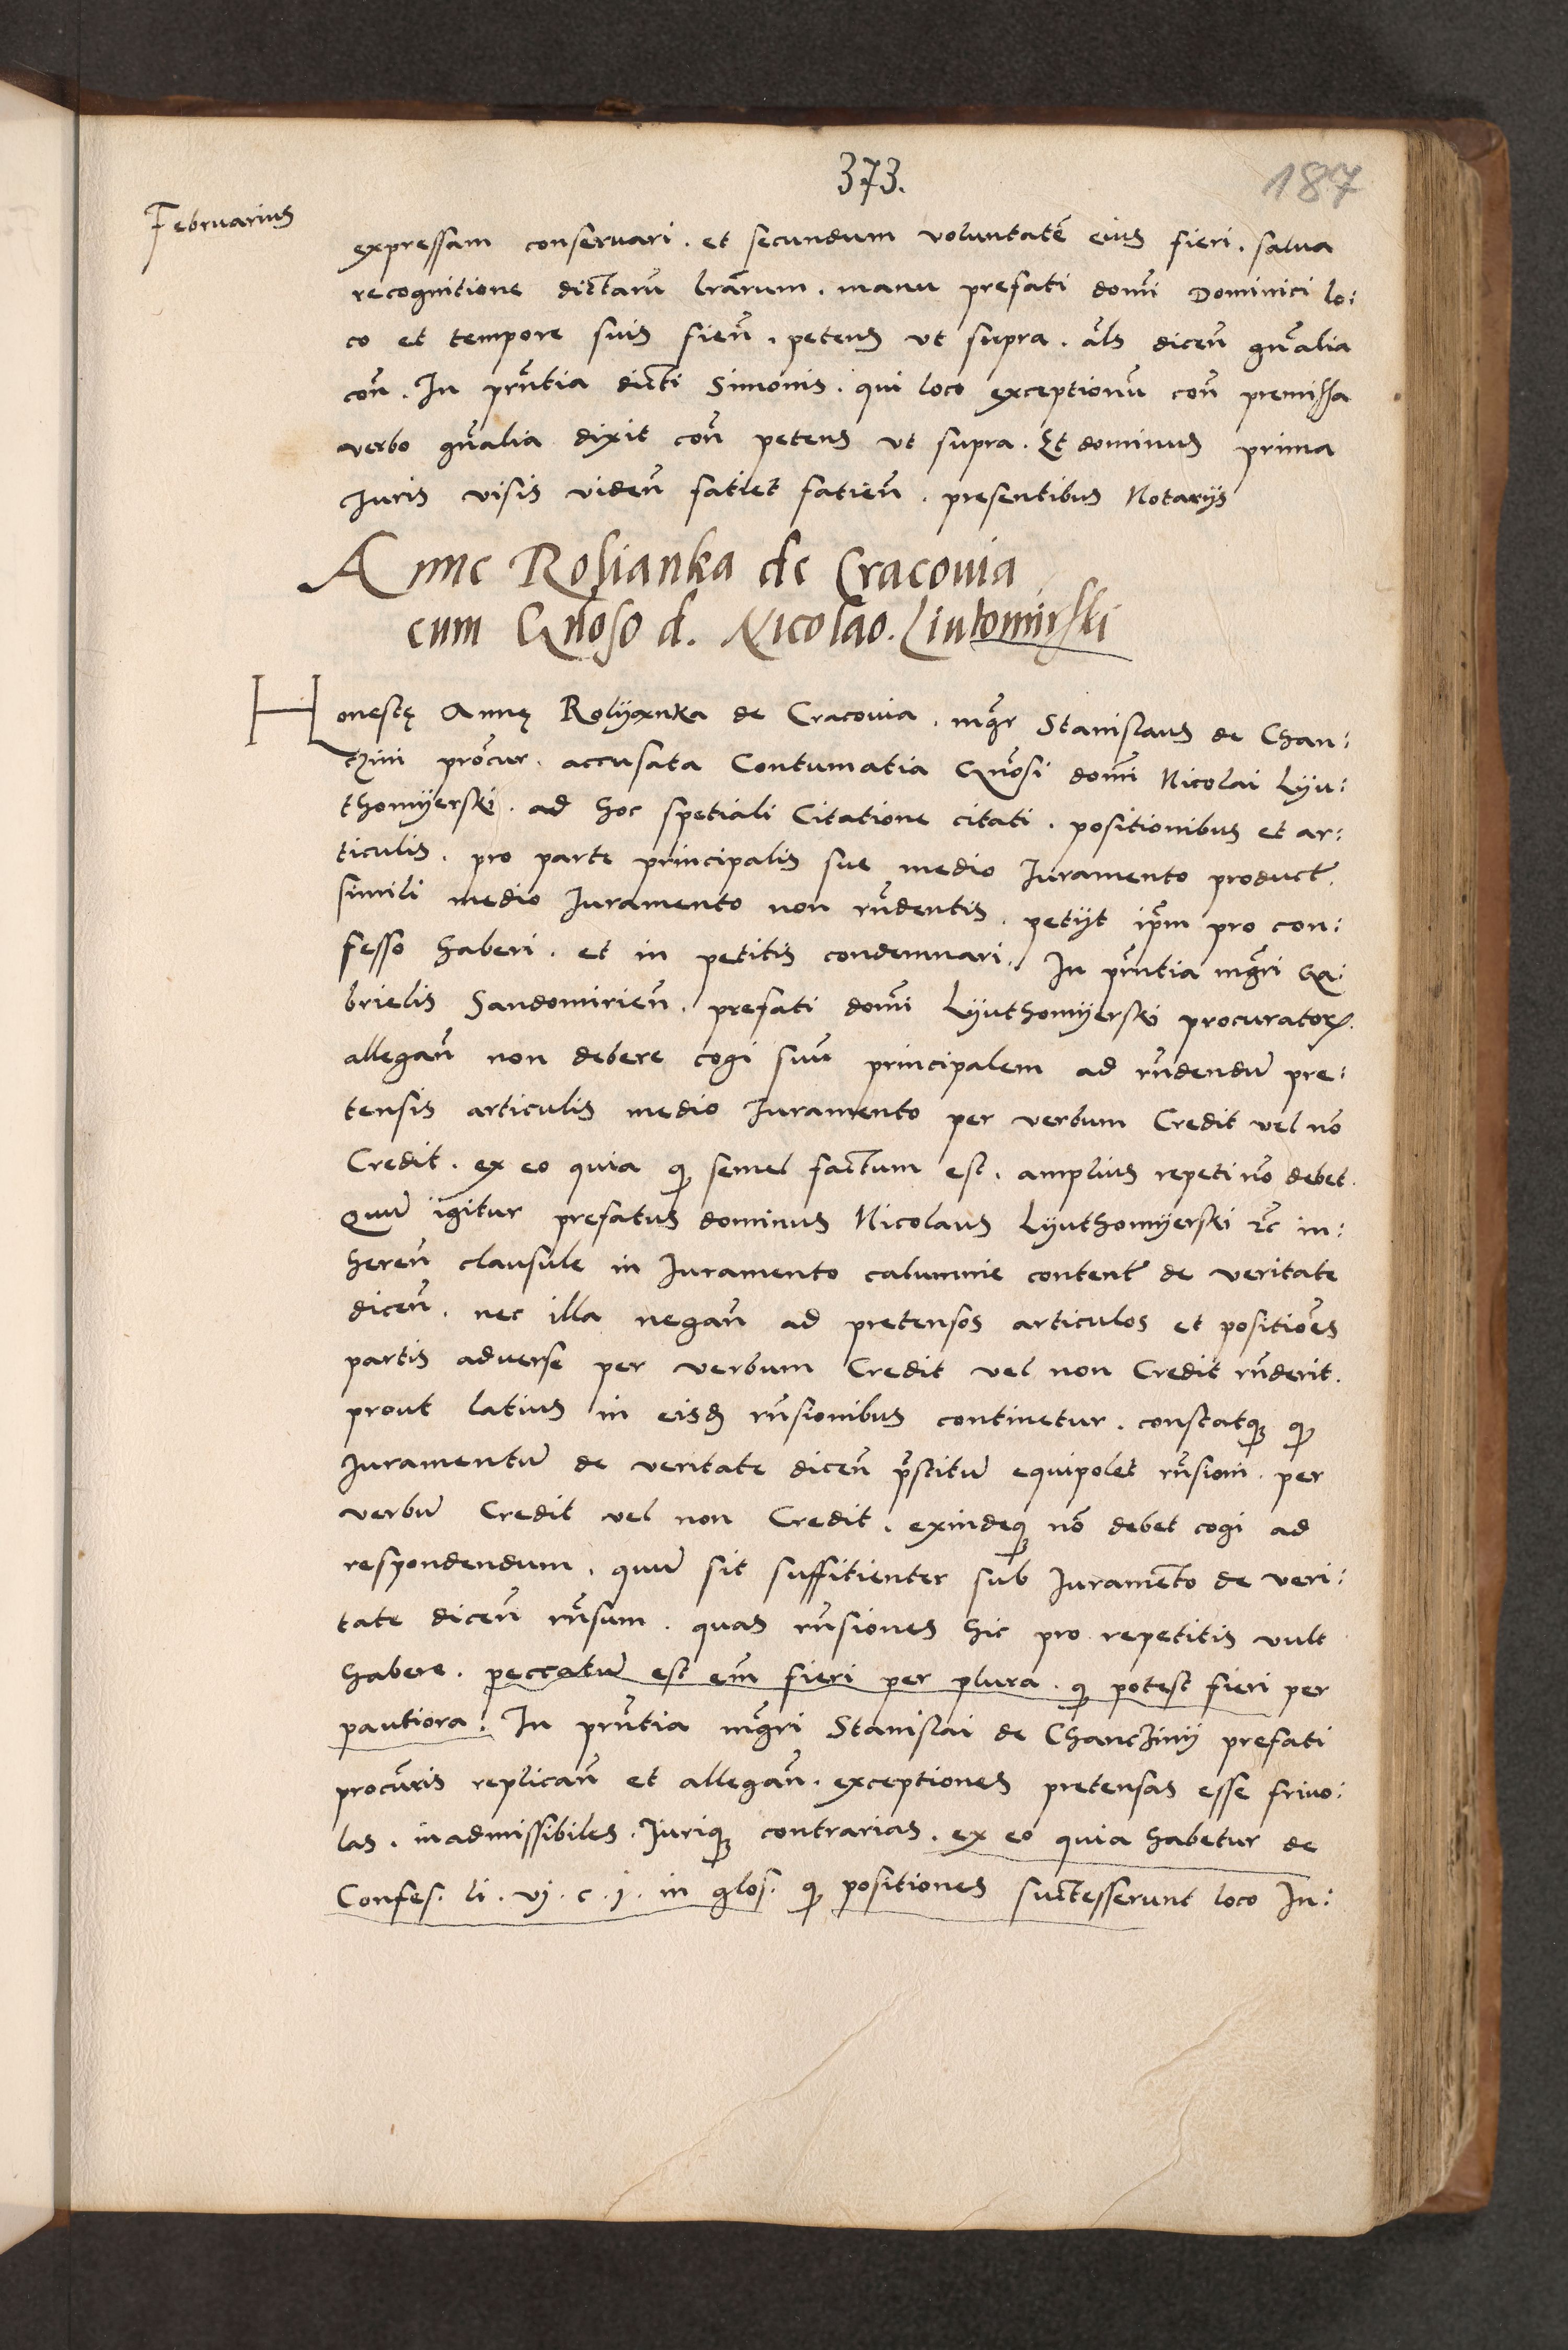 373.
187
Februarius
expressam conseruari. et secundum voluntatẽ eius fieri. salua
recognitione dictarũ lr̃arum. manu prefati domĩ Dominici lo:
co et tempore suis fieñ. petens vt supra. als̃ diceñ gñalia
coñ. In pr̃ntia dicti Simonis. qui loco exceptionũ coñ premissa
verbo gñalia dixit coñ petens vt supra. Et dominus prima
Juris visis videñ satiet fatieñ. presentibus Notarijs
Anne Rolianka de Cracouia
cum Gñoso d. Nicolao. Liutomirski
Honestę Annę Rolÿanka de Cracouia. mg̃r Stanislaus de Chan:
tzini procur̃. accusata Contumatia Gñosi domĩ Nicolai Lÿu:
thomÿerski. ad hoc spetiali Citatione citati. positionibus et ar:
ticulis. pro parte principalis sue medio Iuramento product̃.
simili medio Iuramento non rñdentis. petijt ip̃m pro con:
fesso haberi. et in petitis condemnari. In pr̃ntia mg̃ri Ga:
brielis Sandomirieñ. prefati domĩ Lÿuthomÿerski procurator̃.
allegañ non debere cogi suũ principalem ad rñdendũ pre:
tensis articulis medio Iuramento per verbum Credit vel nõ
Credit. ex eo quia qȝ semel factum est. amplius repeti nõ debet.
Quũ igitur prefatus dominus Nicolaus Lÿuthomÿerski etc̃ in:
hereñ clausule in Iuramento calumnie content̃ de veritate
diceñ. nec illa negañ ad pretensos articulos et positiões
partis aduerse per verbum Credit vel non Credit rñderit.
prout latius in eisdȝ rñsionibus continetur. constatqȝ qȝ
Iuramentũ de veritate diceñ p̃stitũ equipolet rñsioni. per
verbũ Credit vel non Credit. exindeqȝ nõ debet cogi ad
respondendum. quũ sit suffitienter sub Iuramẽto de veri:
tate diceñ rñsum. quas rñsiones hic pro repetitis vult
habere. peccatũ est em̃ fieri per plura. qȝ potest fieri per
pautiora. In pr̃ntia mg̃ri Stanislai de Chanczinÿ prefati
procur̃is replicañ et allegañ. exceptiones pretensas esse friuo:
las. inadmissibiles. Iuriqȝ contrarias. ex eo quia habetur de
Confes. li. vj. c. j. in glos. qȝ positiones suctesserunt loco In: